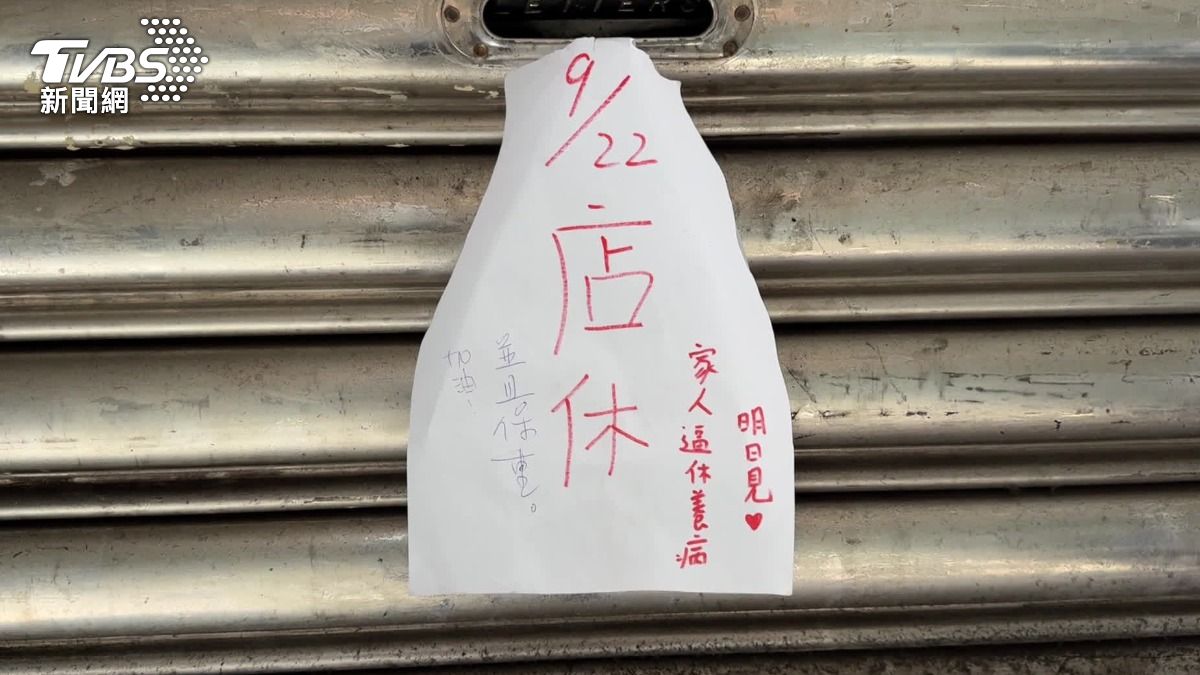 TVBS
新聞網
LETTERS
9/22
店休
明日見♥
家人逼休養病
加油、
並且保重。